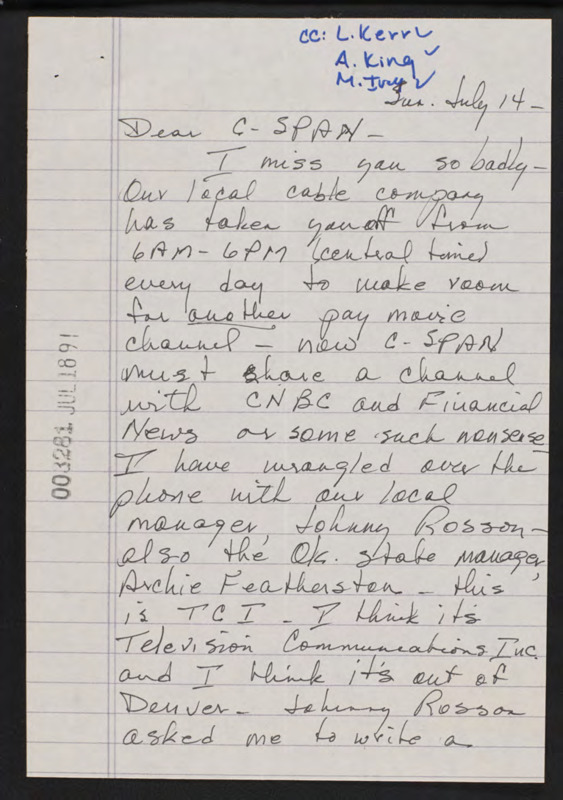 cc: L. Kerr ✓
A. King ✓
M. Ivey ✓
Sun. July 14 -
Dear C-SPAN -
I miss you so badly -
Our local cable company
has taken you off from
6 AM - 6 PM (central time)
every day to make room
for another pay movie
channel - now C-SPAN
must share a channel
with CNBC and Financial
News or some such nonsense
I have wrangled over the
phone with our local
manager, Johnny Rosson -
also the Ok. state manager,
Archie Featherston - this
is TCI - I think it's
Television Communications Inc.
and I think it's out of
Denver - Johnny Rosson
asked me to write a
003281 JUL 18 91